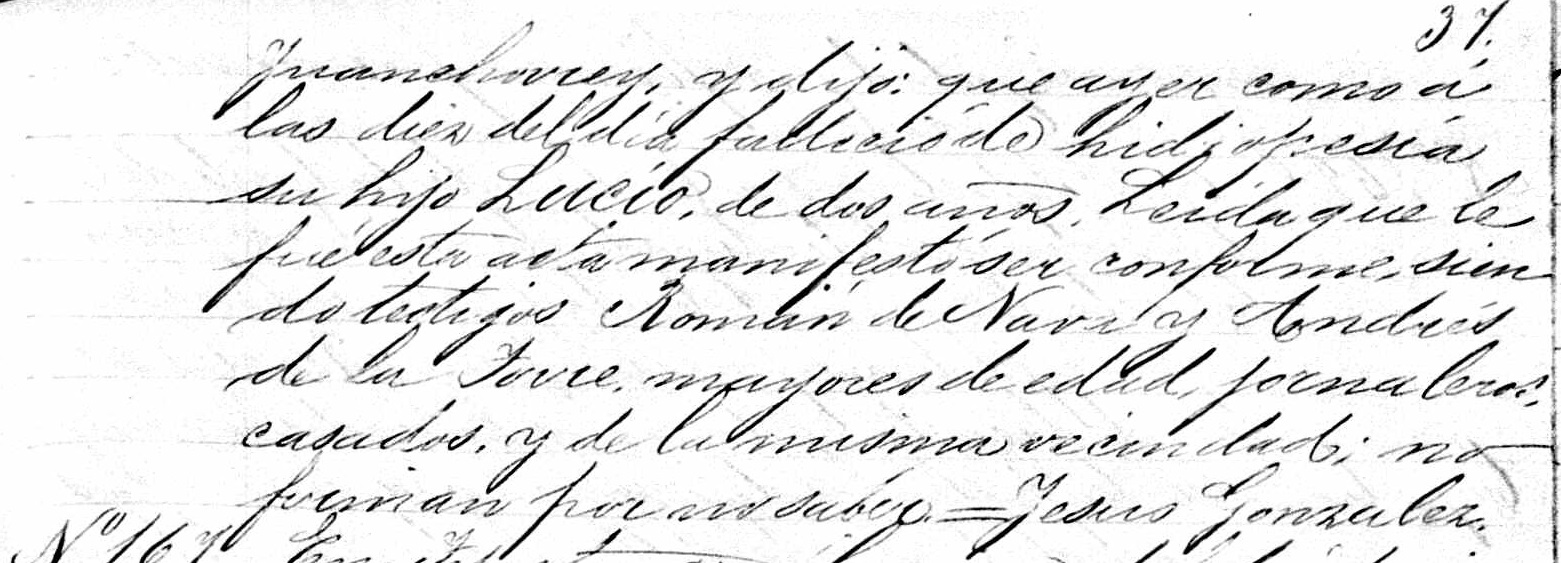 37.
Juanchorrey, y dijo: que ayer como á
las diez del día falleció de hidropesía
su hijo Lucío, de dos años. Leida que le
fué esta acta manifestó ser conforme, sien
do testigos Román de Nava y Andrés
de la Torre, mayores de edad, jornaleros,
casados, y de la misma vecindad; no
firman por no saber. = Jesus Gonzalez.
Nº 167